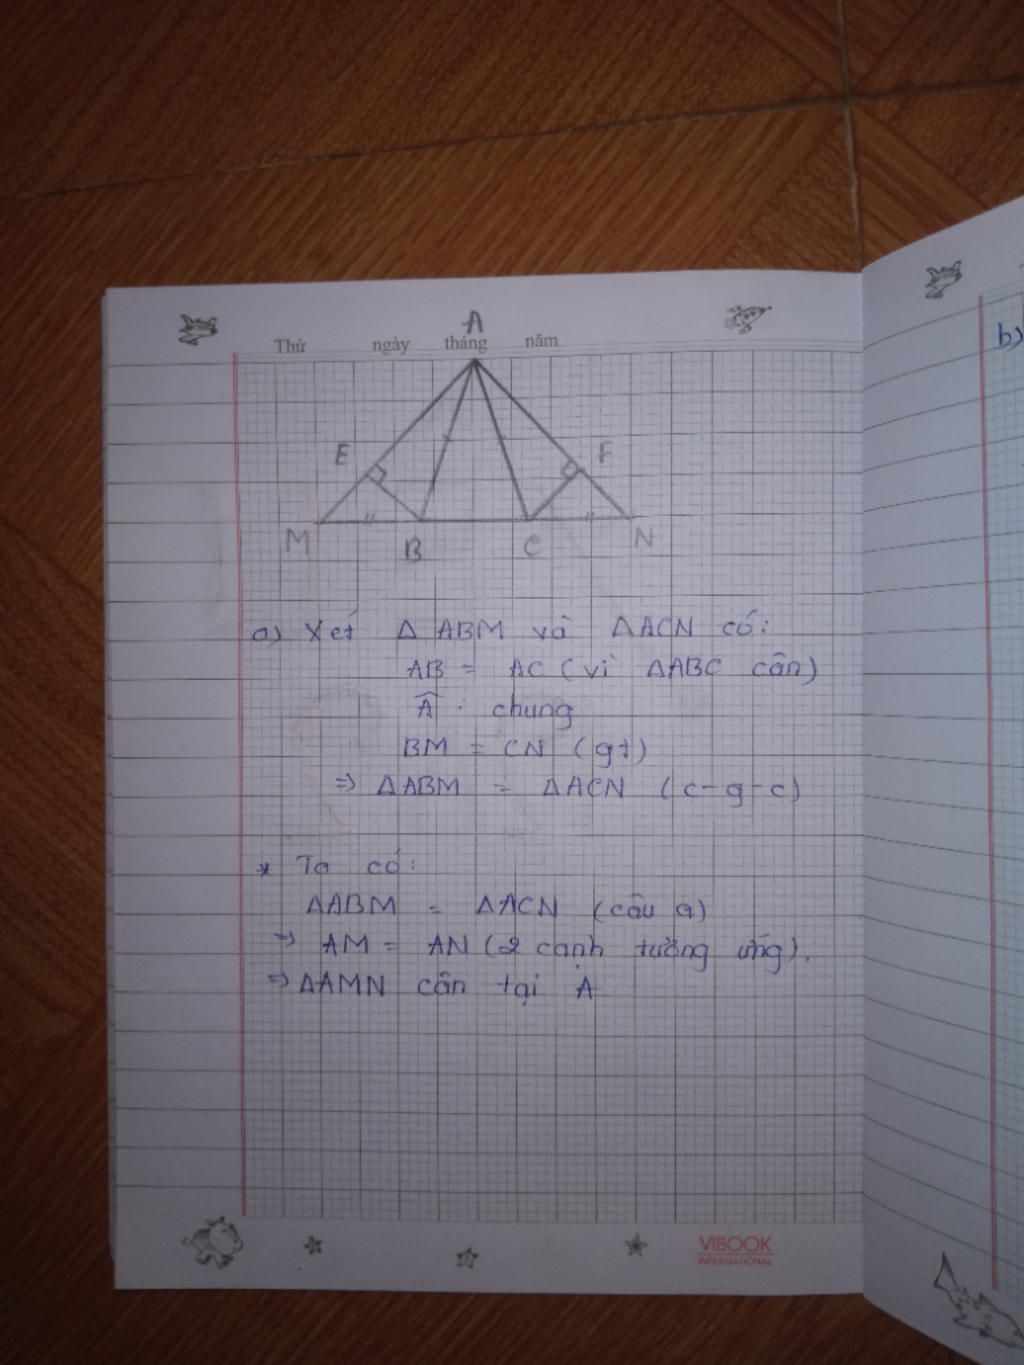 A
Thứ ngày tháng năm
E F
M B C N
a) Xét Δ ABM và ΔACN có:
AB = AC (vì ΔABC cân)
Â : chung
BM = CN (gt)
⇒ ΔABM = ΔACN (c-g-c)
* Ta có:
ΔABM = ΔACN (câu a)
⇒ AM = AN (2 cạnh tương ứng).
⇒ ΔAMN cân tại A
VIBOOK
INTERNATIONAL
b)